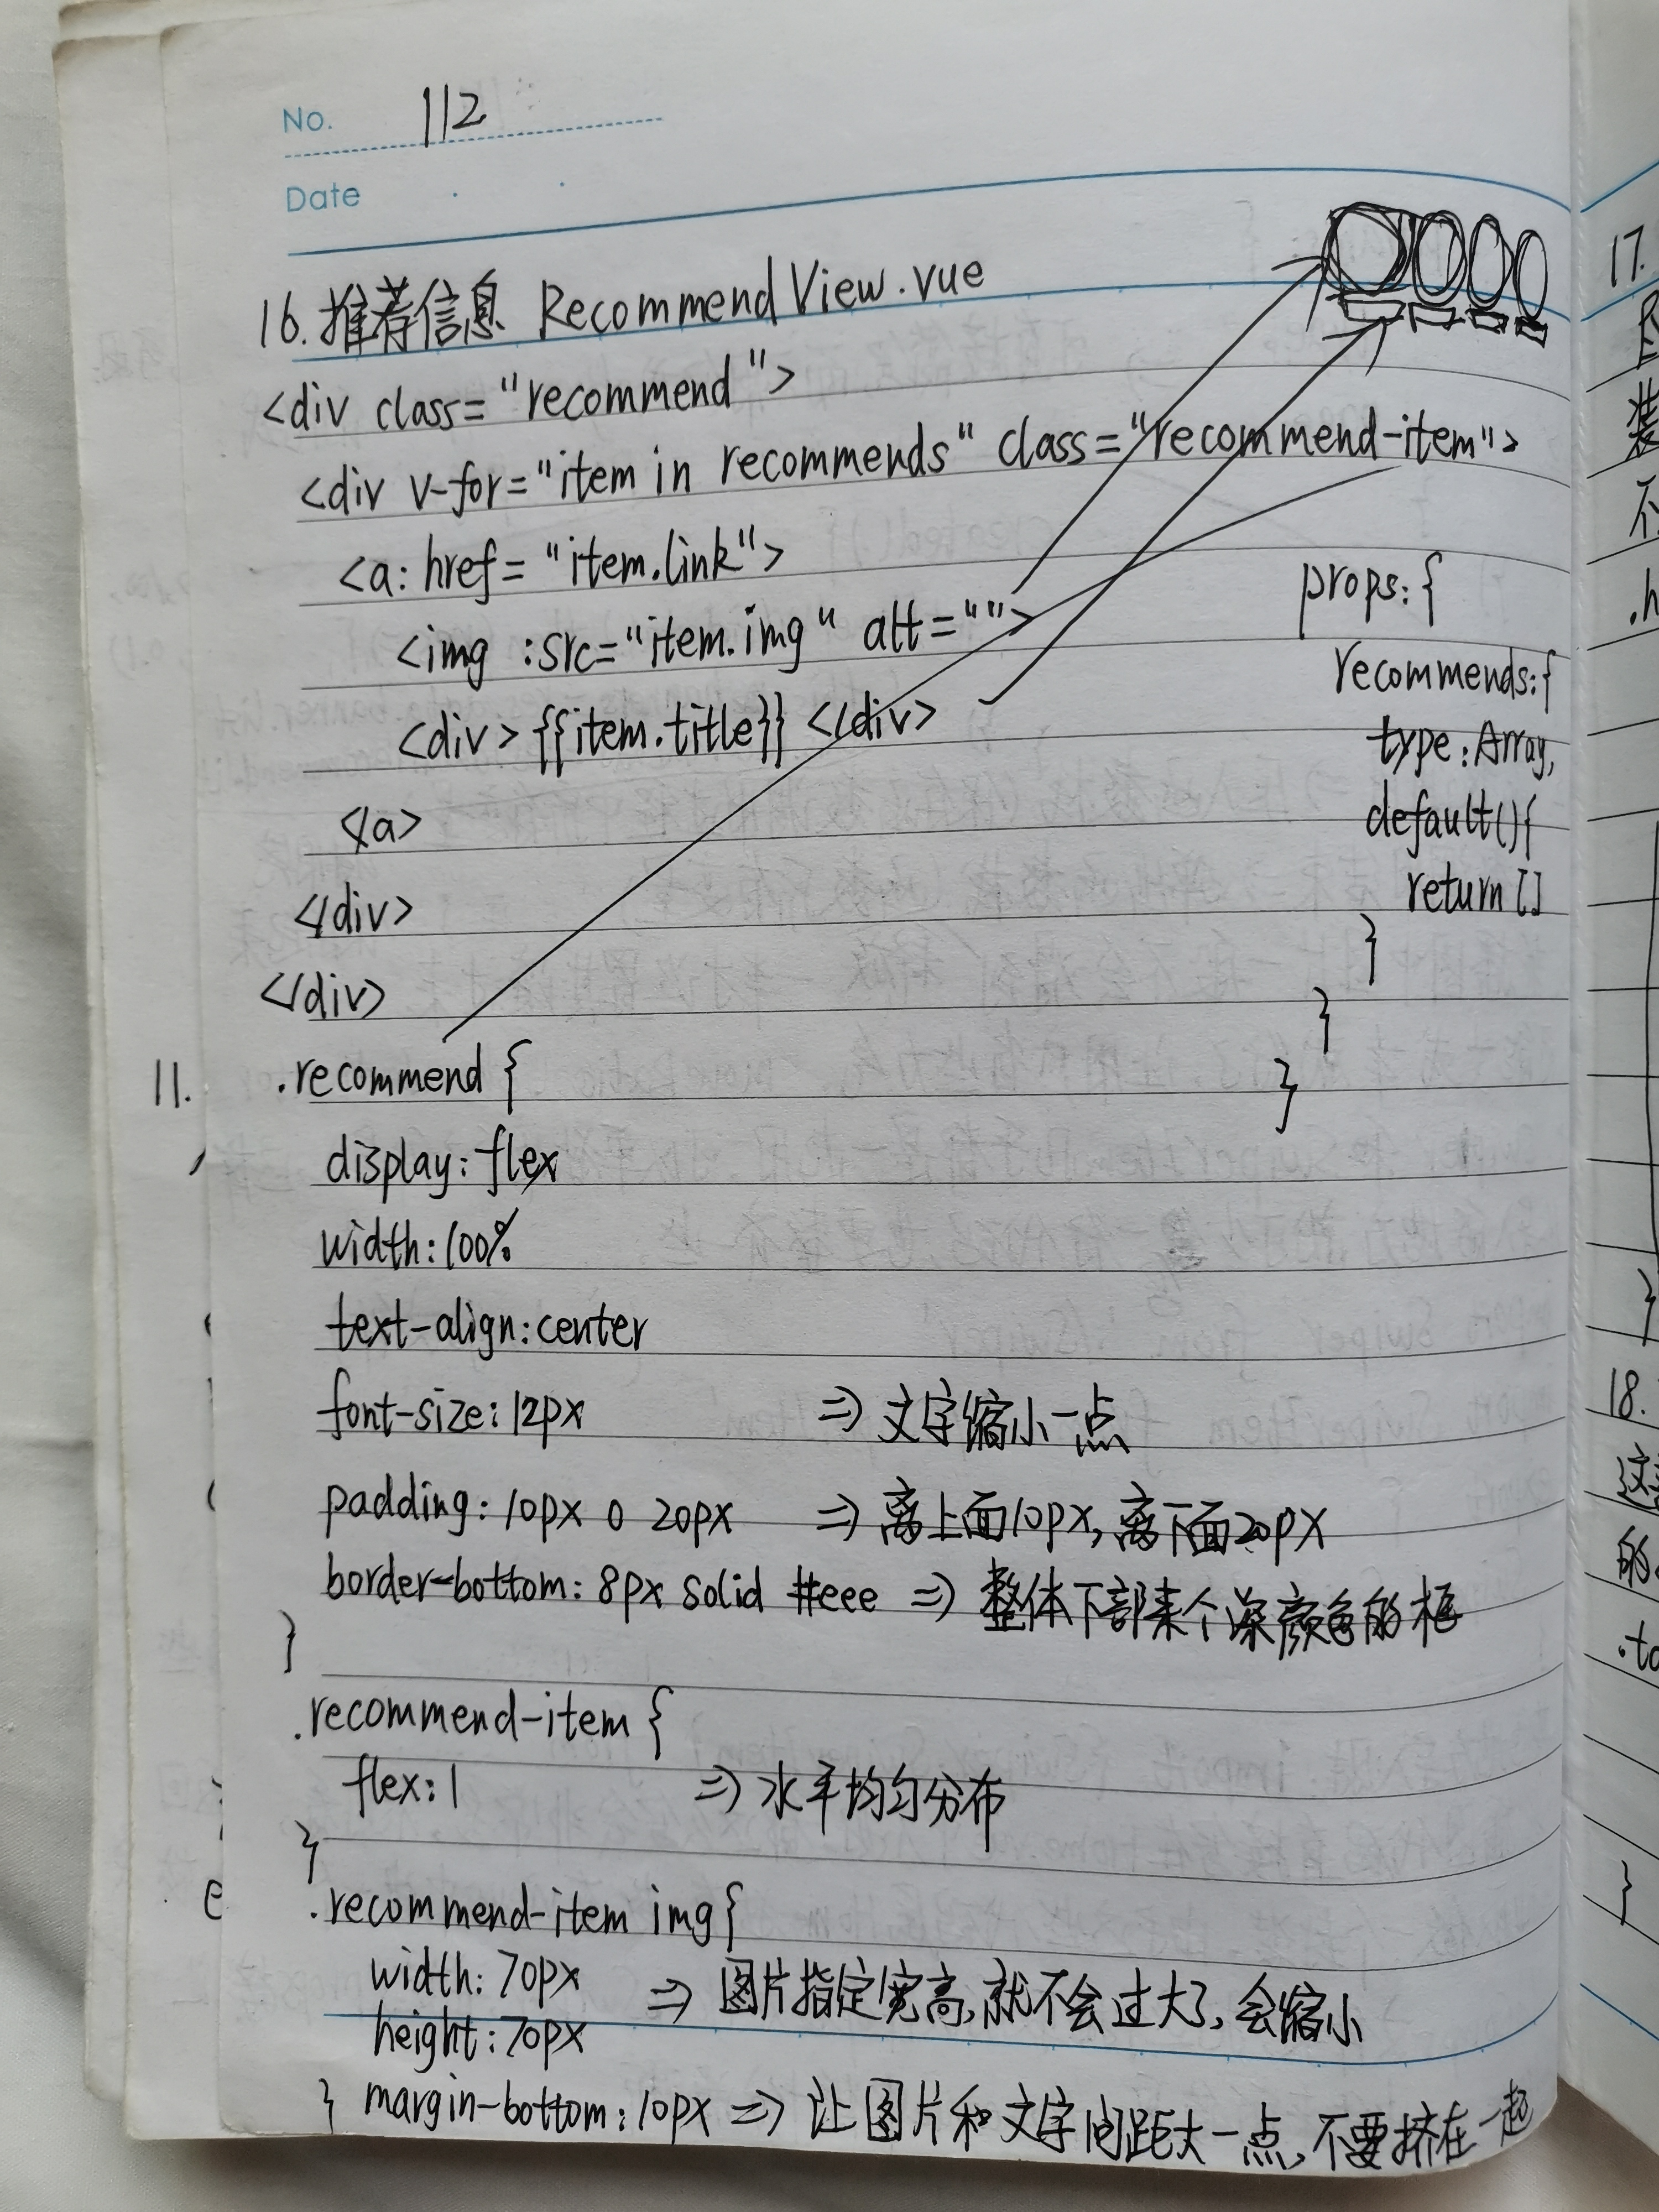 No. 112
Date
16.推荐信息 RecommendView.vue
<div class="recommend">
<div v-for="item in recommends" class="recommend-item">
<a:href="item.link">
<img :src="item.img" alt="">
<div>{{item.title}}</div>
</a>
</div>
</div>
props:{
recommends:{
type:Array,
default(){
return []
}
}
}
.recommend {
display:flex
width:100%
text-align:center
font-size:12px => 文字缩小一点
padding:10px 0 20px => 离上面10px,离下面20px
border-bottom:8px solid #eee => 整体下部来个深颜色的框
}
.recommend-item {
flex:1 => 水平均匀分布
}
.recommend-item img{
width:70px => 图片指定宽高,就不会过大了,会缩小
height:70px
} margin-bottom:10px => 让图片和文字间距大一点,不要挤在一起
11.
17.
装
不
.h
}
18.
这
的
.to
}